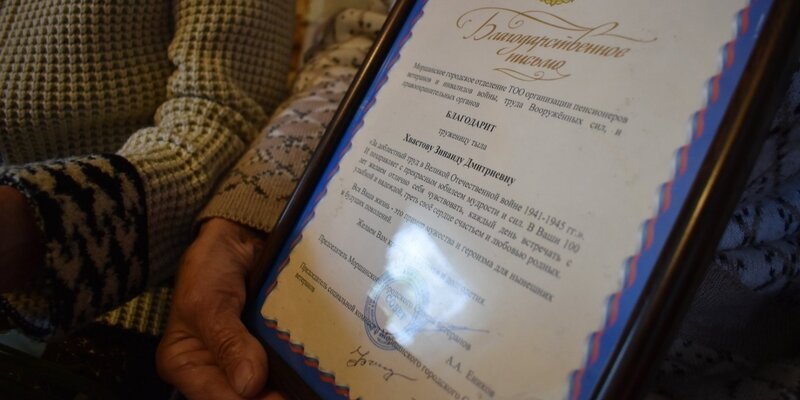 Благодарственное
письмо
Моршанское городское отделение ТОО организации пенсионеров
ветеранов и инвалидов войны, труда Вооружённых сил, и
правоохранительных органов
БЛАГОДАРИТ
труженицу тыла
Хвастову Зинаиду Дмитриевну
«За доблестный труд в Великой Отечественной войне 1941-1945 гг.».
И поздравляет с прекрасным юбилеем мудрости и сил. В Ваши 100
лет желаем отлично себя чувствовать, каждый день встречать с
улыбкой и надеждой, греть своё сердце счастьем и любовью родных.
Вся Ваша жизнь - это пример мужества и героизма для нынешних
и будущих поколений.
Желаем Вам
Председатель Моршанского городского Совета ветеранов
А.А. Еников
Председатель социальной комиссии Моршанского городского
ветеранов